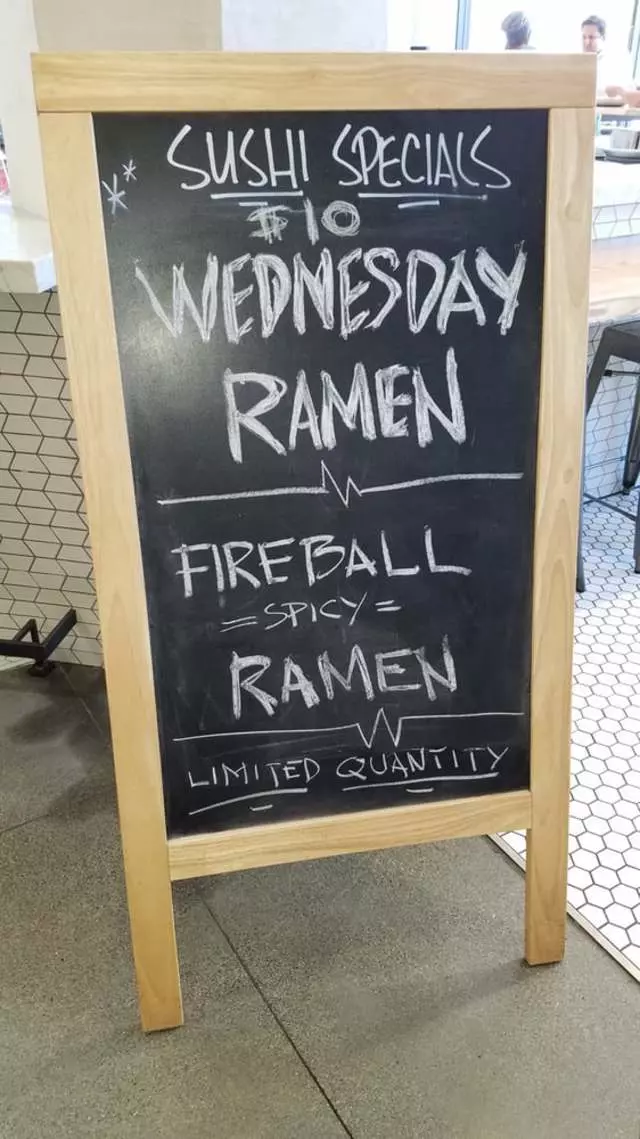 SUSHI SPECIALS
$10
WEDNESDAY
RAMEN
FIREBALL
=SPICY=
RAMEN
LIMITED QUANTITY